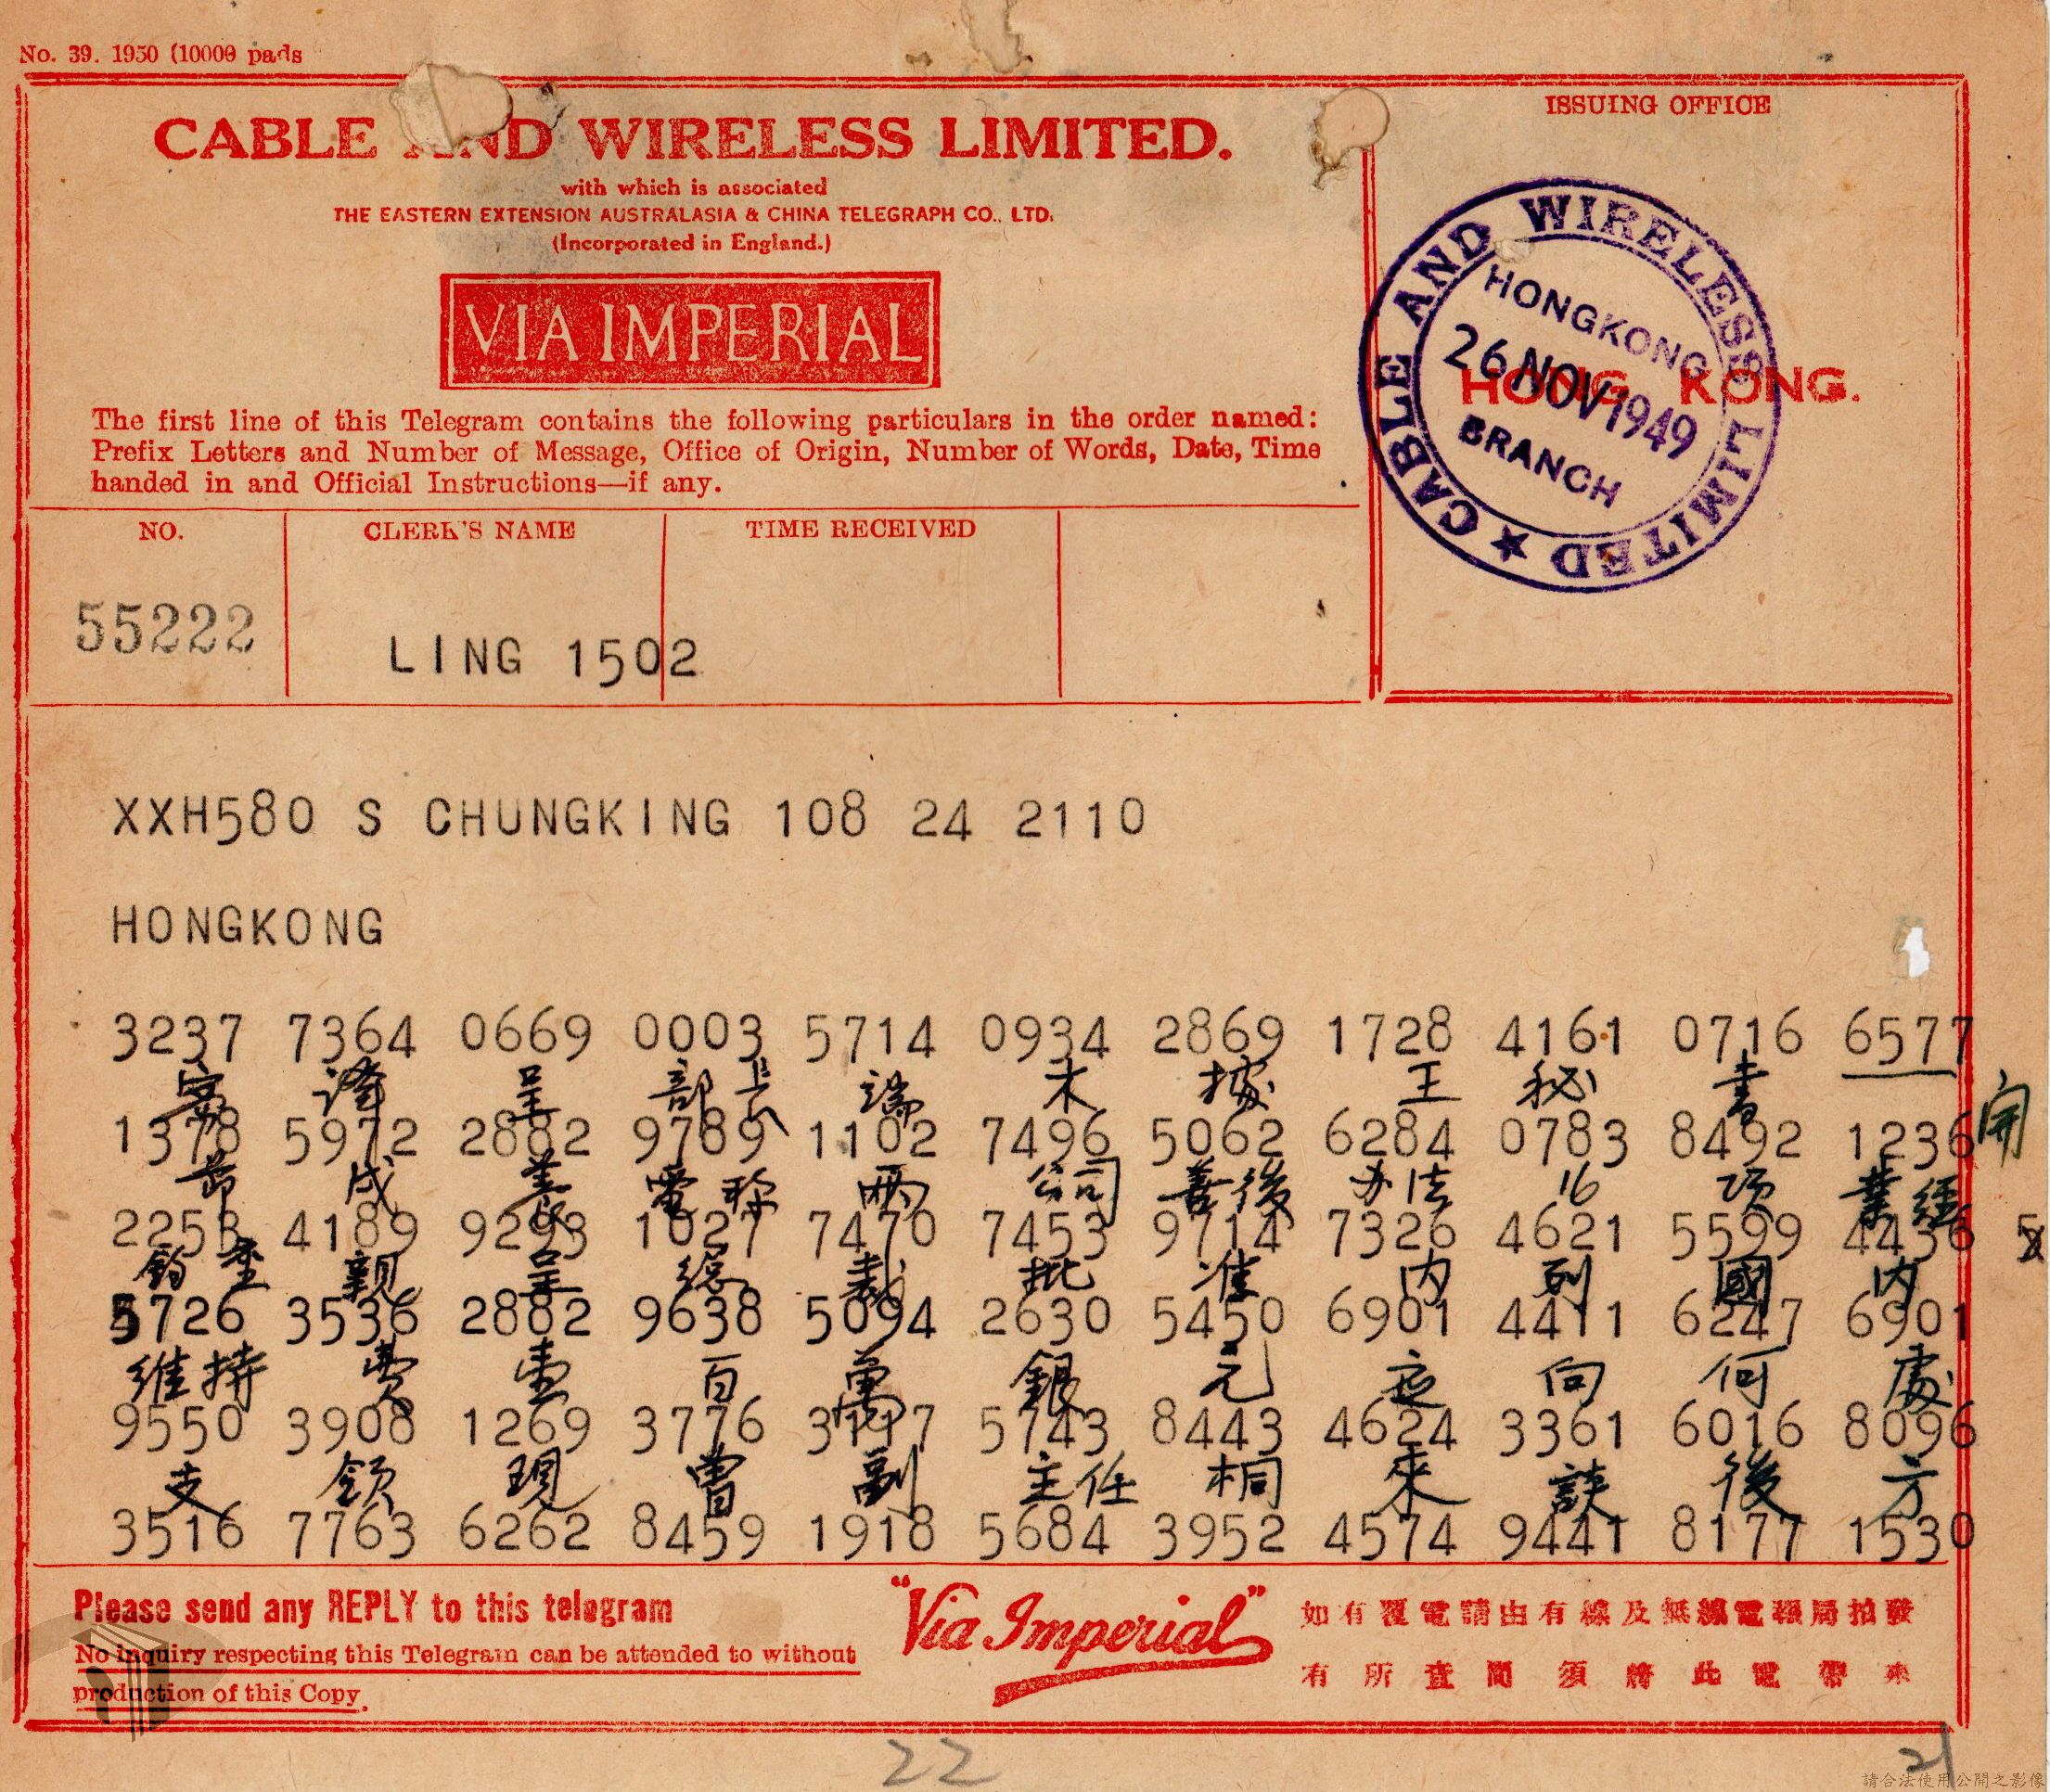 No. 39. 1950 (10000 pads
CABLE AND WIRELESS LIMITED.
with which is associated
THE EASTERN EXTENSION AUSTRALASIA & CHINA TELEGRAPH CO., LTD.
(Incorporated in England.)
VIA IMPERIAL
The first line of this Telegram contains the following particulars in the order named:
Prefix Letters and Number of Message, Office of Origin, Number of Words, Date, Time
handed in and Official Instructions—if any.
ISSUING OFFICE
HONG KONG.
CABLE AND WIRELESS LIMITED
HONGKONG
26 NOV 1949
BRANCH
NO. CLERK'S NAME TIME RECEIVED
55222 LING 1502
XXH580 S CHUNGKING 108 24 2110
HONGKONG
3237 7364 0669 0003 5714 0934 2869 1728 4161 0716 6577
密 譯 呈 部長 端 木 據 王 秘 書 開
1378 5972 2882 9789 1102 7496 5062 6284 0783 8492 1236
成 電 稱 兩 公司 善後 办法 16 項 業經
2253 4189 9293 1027 7470 7453 9714 7326 4621 5599 4436
鈞座 親 呈 總裁 批 准 内 列 國 内
5726 3536 2882 9638 5094 2630 5450 6901 4411 6247 6901
維持 費 壹 百 萬 銀 元 应 向 何 處
9550 3908 1269 3776 3117 5743 8443 4624 3361 6016 8096
支 領 現 曾 副 主任 桐 來 談 後 方
3516 7763 6262 8459 1918 5684 3952 4574 9441 8177 1530
Please send any REPLY to this telegram
No inquiry respecting this Telegram can be attended to without
production of this Copy.
"Via Imperial"
如有覆電請由有線及無線電報局拍發
有所查問須將此電帶來
22
21
請合法使用公開之影像